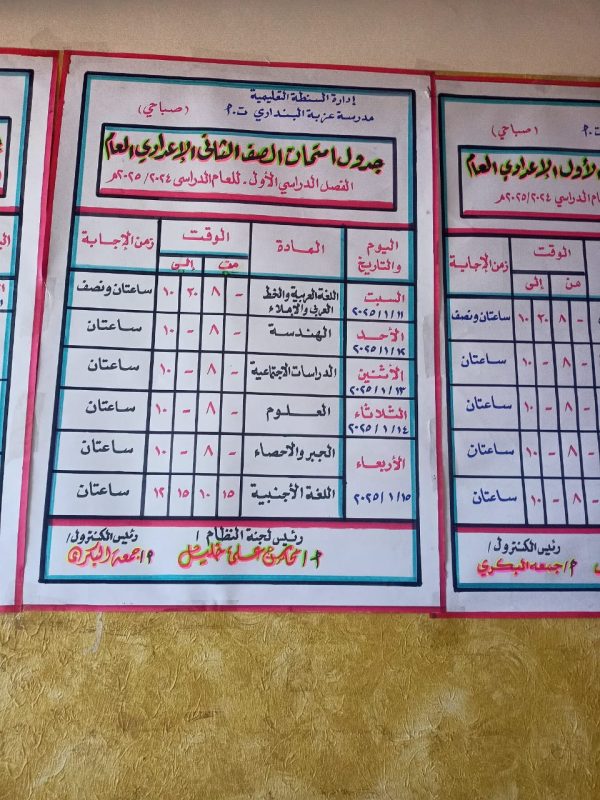 إدارة السنطة التعليمية
مدرسة عزبة البنداري ت.٢
(صباحي)
جدول امتحانات الصف الثاني الإعدادي العام
الفصل الدراسي الأول. للعام الدراسي ٢٠٢٥/٢٠٢٤م
اليوم والتاريخ المادة الوقت زمن الإجابة
من إلى
السبت ٢٠٢٥/١/١١ اللغة العربية والخط العربي والإملاء - ٨ ٢٠ ١٠ ساعتان ونصف
الأحد ٢٠٢٥/١/١٢ الهندسة - ٨ - ١٠ ساعتان
الأثنين ٢٠٢٥/١/١٣ الدراسات الاجتماعية - ٨ - ١٠ ساعتان
الثلاثاء ٢٠٢٥/١/١٤ العلوم - ٨ - ١٠ ساعتان
الأربعاء ٢٠٢٥/١/١٥ الجبر والاحصاء - ٨ - ١٠ ساعتان
اللغة الأجنبية ١٥ ١٠ ١٥ ١٢ ساعتان
رئيس لجنة النظام / رئيس الكنترول/
علي خليل جمعه البكري
(صباحي)
الأول الإعدادي العام
ام الدراسي ٢٠٢٥/٢٠٢٤م
الوقت زمن الإجابة
من إلى
- ٨ ٢٠ ١٠ ساعتان ونصف
- ٨ - ١٠ ساعتان
- ٨ - ١٠ ساعتان
- ٨ - ١٠ ساعتان
- ٨ - ١٠ ساعتان
رئيس الكنترول/
جمعه البكري